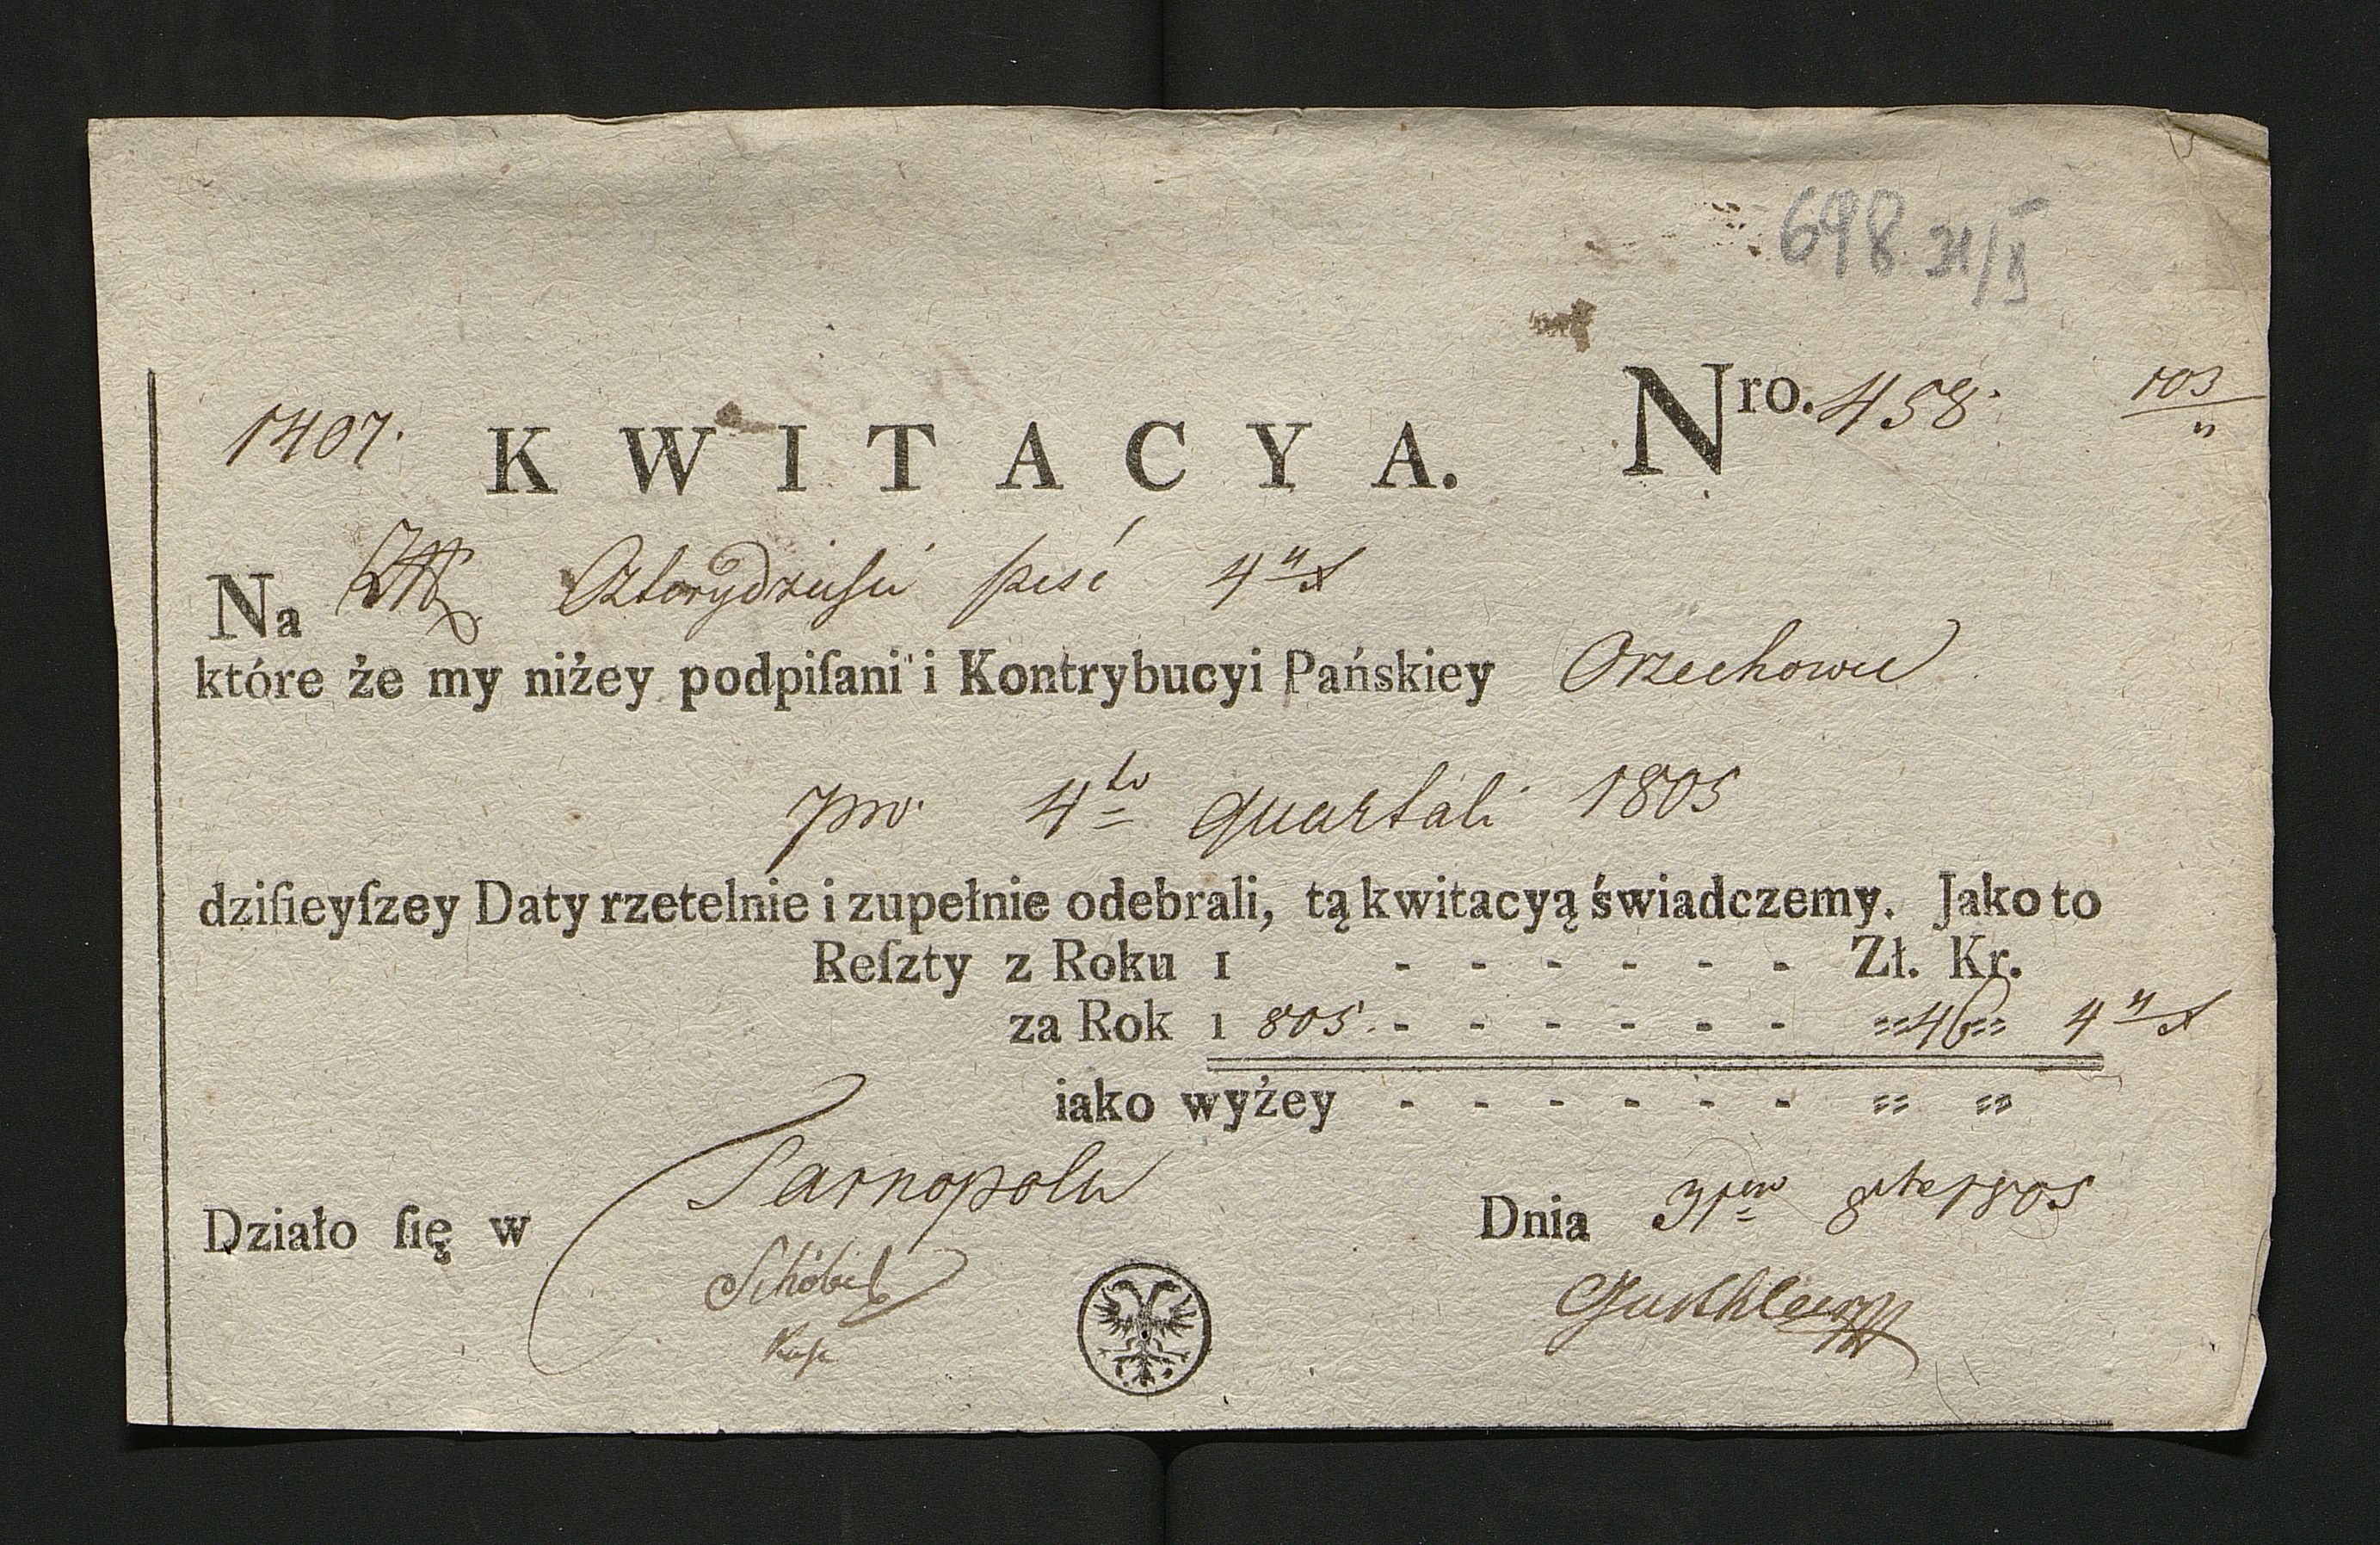 698 21/II
Nro. 458. 103
1407. KWITACYA.
Na Czterydzieści sześć 4
które że my niżey podpiſani i Kontrybucyi Pańskiey Orzechowce
pro 4to quartali 1805
dziſieyſzey Daty rzetelnie i zupełnie odebrali, tą kwitacyą świadczemy. Jako to
Reſzty z Roku 1 - - - - - - Zł. Kr.
za Rok 1 805. - - - - - - 46 4
iako wyżey - - - - - -
Działo ſię w Tarnopolu Dnia 31 8bre 1805
Schöbel